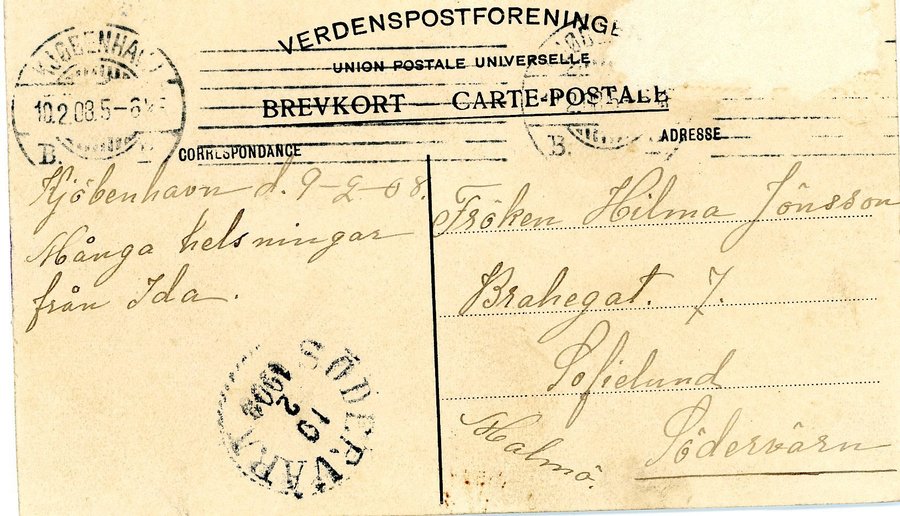 VERDENSPOSTFORENINGE
UNION POSTALE UNIVERSELLE
BREVKORT — CARTE-POSTALE
CORRESPONDANCE
ADRESSE
KJØBENHAVN
10.2.08.5-6
B.
B.
Kjöbenhavn d. 9-2-08.
Många helsningar
från Ida.
Fröken Hilma Jönsson
Brahegat. 7.
Sofielund
Malmö.
Södervärn
SÖDERVÄRN
10
2
1908